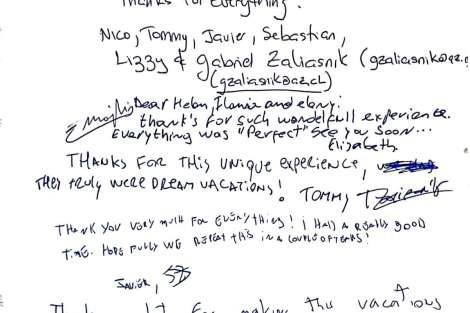 Thanks for Everything.
Nico, Tommy, Javier, Sebastian,
Lizzy & Gabriel Zaliasnik (gzaliasnik@az.
(gzaliasnik@az.cl)
Dear Helen, and ebony:
thank's for such wonderfull experience.
Everything was "Perfect" See you soon...
Elizabeth
THANKS FOR THIS UNIQUE EXPERIENCE,
THEY TRULY WERE DREAM VACATIONS! TOMMY
THANK YOU VERY MUCH FOR EVERYTHING! I HAD A REALLY GOOD
TIME. HOPE FULLY WE REPEAT THIS IN A COUPLE OF YEARS!
JAVIER,
for making this vacations